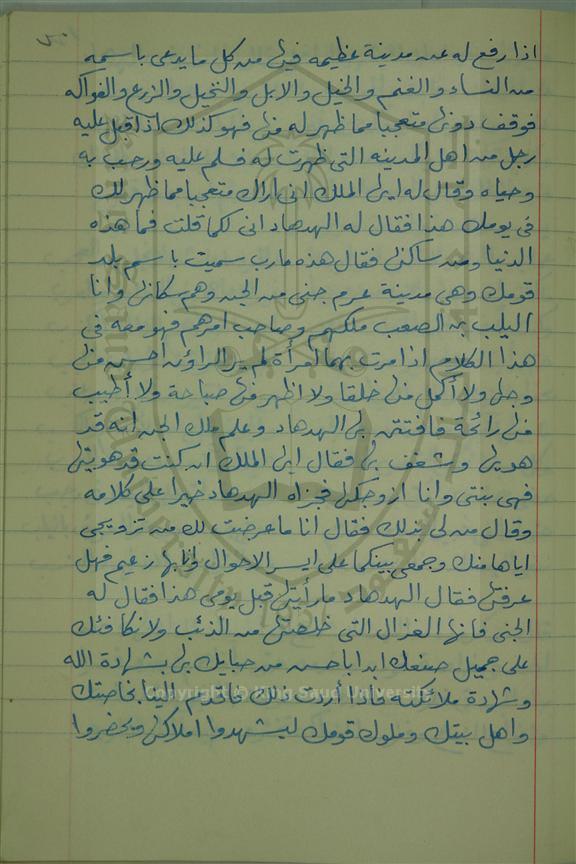 اذا رفع له عن مدينة عظيمه فيها من كل ما يدعى باسمه
من النساء والغنم والخيل والابل والنخيل والزرع والفواكه
فوقف دونها متعجبا مما ظهر له منها فهو كذلك اذ اقبل عليه
رجل من اهل المدينه التي ظهرت له فسلم عليه ورحب به
وحياه وقال له ايها الملك اني اراك متعجبا مما ظهر لك
في يومك هذا فقال له الهدهاد اني لكما قلت فما هذه
الدنيا ومن ساكنها فقال هذه مارب سميت باسم بلد
قومك وهي مدينة عرم جني من الجن وهم سكانها وانا
اليلب بن الصعب ملكهم وصاحب امرهم فهو معه في
هذا الكلام اذ امرت بهما امرأة لم ير الراؤن احسن منها
وجها ولا أكمل منها خلقا ولا اظهر منها صباحة ولا أطيب
منها رائحة فافتتن بها الهدهاد وعلم ملك الجن انه قد
هويها وشغف بها فقال ايها الملك ان كنت قد هويتها
فهي بنتي وانا ازوجكها فجزاه الهدهاد خيرا على كلامه
وقال من لي بذلك فقال انا ما عرضت لك من تزويجي
اياها منك وجمعي بينكما على ايسر الاحوال وانا بها زعيم فهل
عرفتها فقال الهدهاد ما رأيتها قبل يومي هذا فقال له
الجني فانها الغزال التي خلصتها من الذئب ولا نكافئك
على جميل صنعك ابدا باحسن من حبايك بها بشهادة الله
وشهادة ملائكته فاذا أردت ذلك فاقدم الينا بخاصتك
واهل بيتك وملوك قومك ليشهدوا املاكها ويحضروا
Copyright © King Saud University
1957